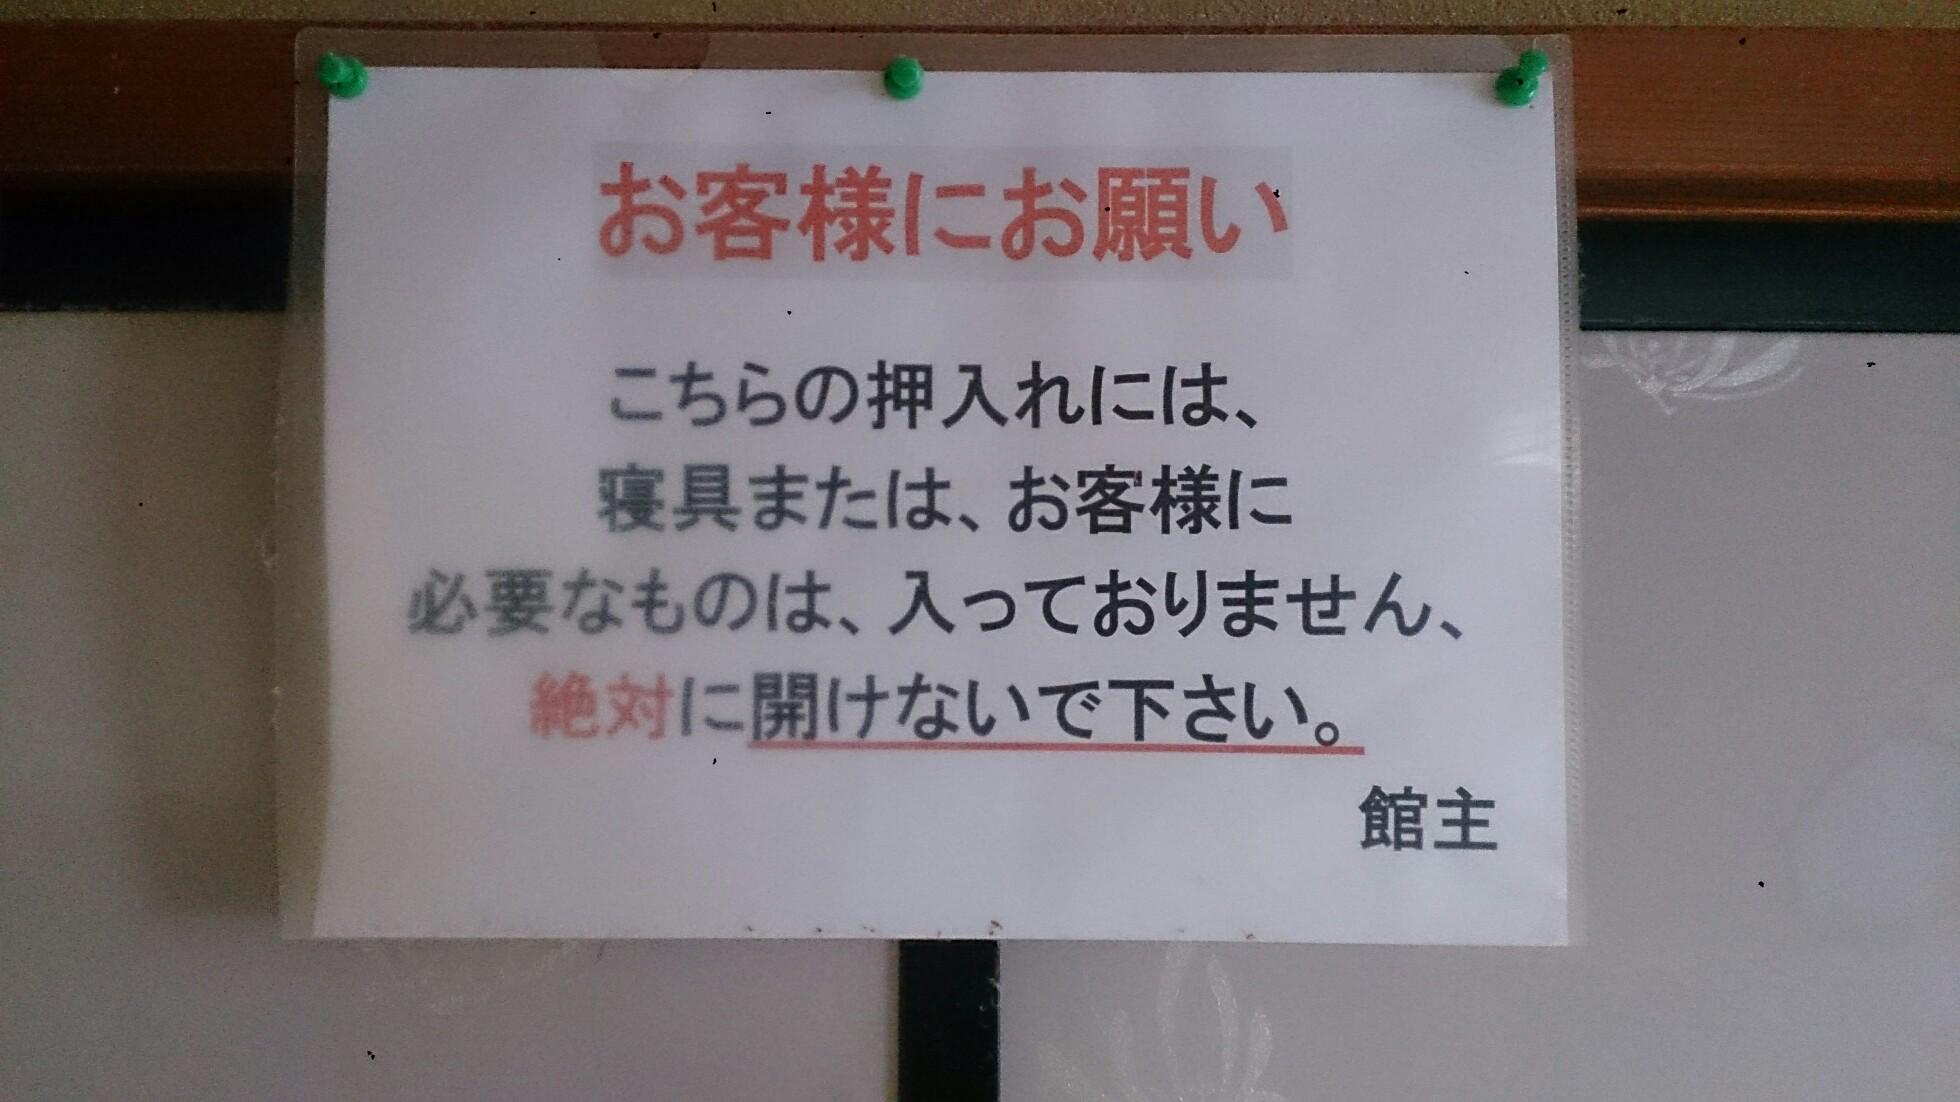 お客様にお願い
こちらの押入れには、
寝具または、お客様に
必要なものは、入っておりません、
絶対に開けないで下さい。
館主